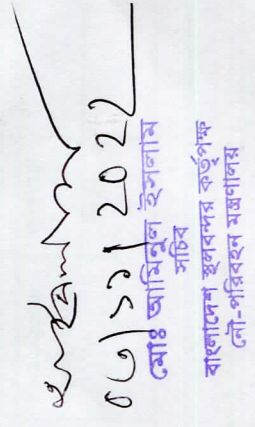 ০৩/১১/২০২২
মোঃ আমিনুল ইসলাম
সচিব
বাংলাদেশ স্থলবন্দর কর্তৃপক্ষ
নৌ-পরিবহন মন্ত্রণালয়